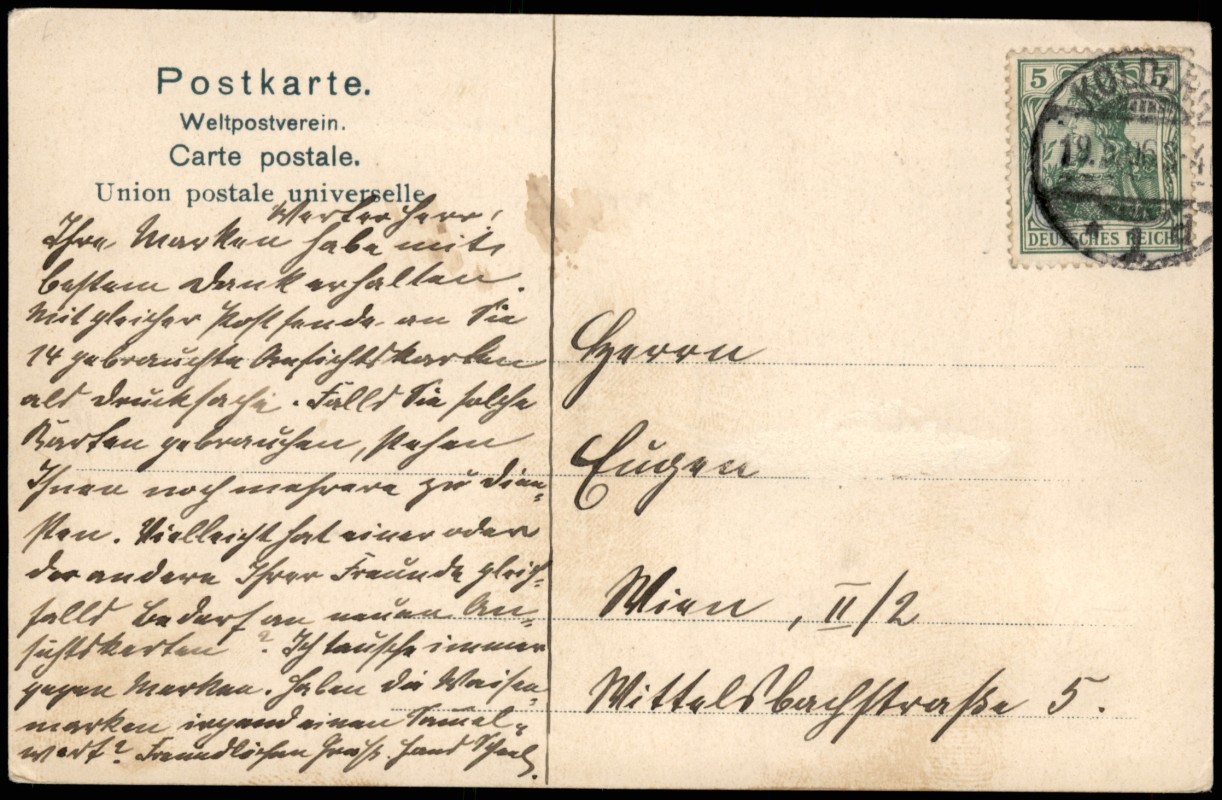 Postkarte.
Weltpostverein.
Carte postale.
Union postale universelle
Werter Herr!
Ihre Marken habe mit
bestem Dank erhalten.
Mit gleicher Post sende an Sie
14 gebrauchte Ansichtskarten
als Drucksache. Falls Sie solche
Karten gebrauchen, stehen
Ihnen noch mehrere zu Dien-
sten. Vielleicht hat einer oder
der andere Ihrer Freunde gleich-
falls Bedarf an neuen An-
sichtskarten? Ich tausche immer
gegen Marken. Haben die Waisen
marken irgend einen Samel-
wert? Freundlichen Gruß. Hans
5 5
DEUTSCHES REICH
KOLBERG
19. 06
Herrn
Eugen
Wien, II/2
Wittelsbachstraße 5.